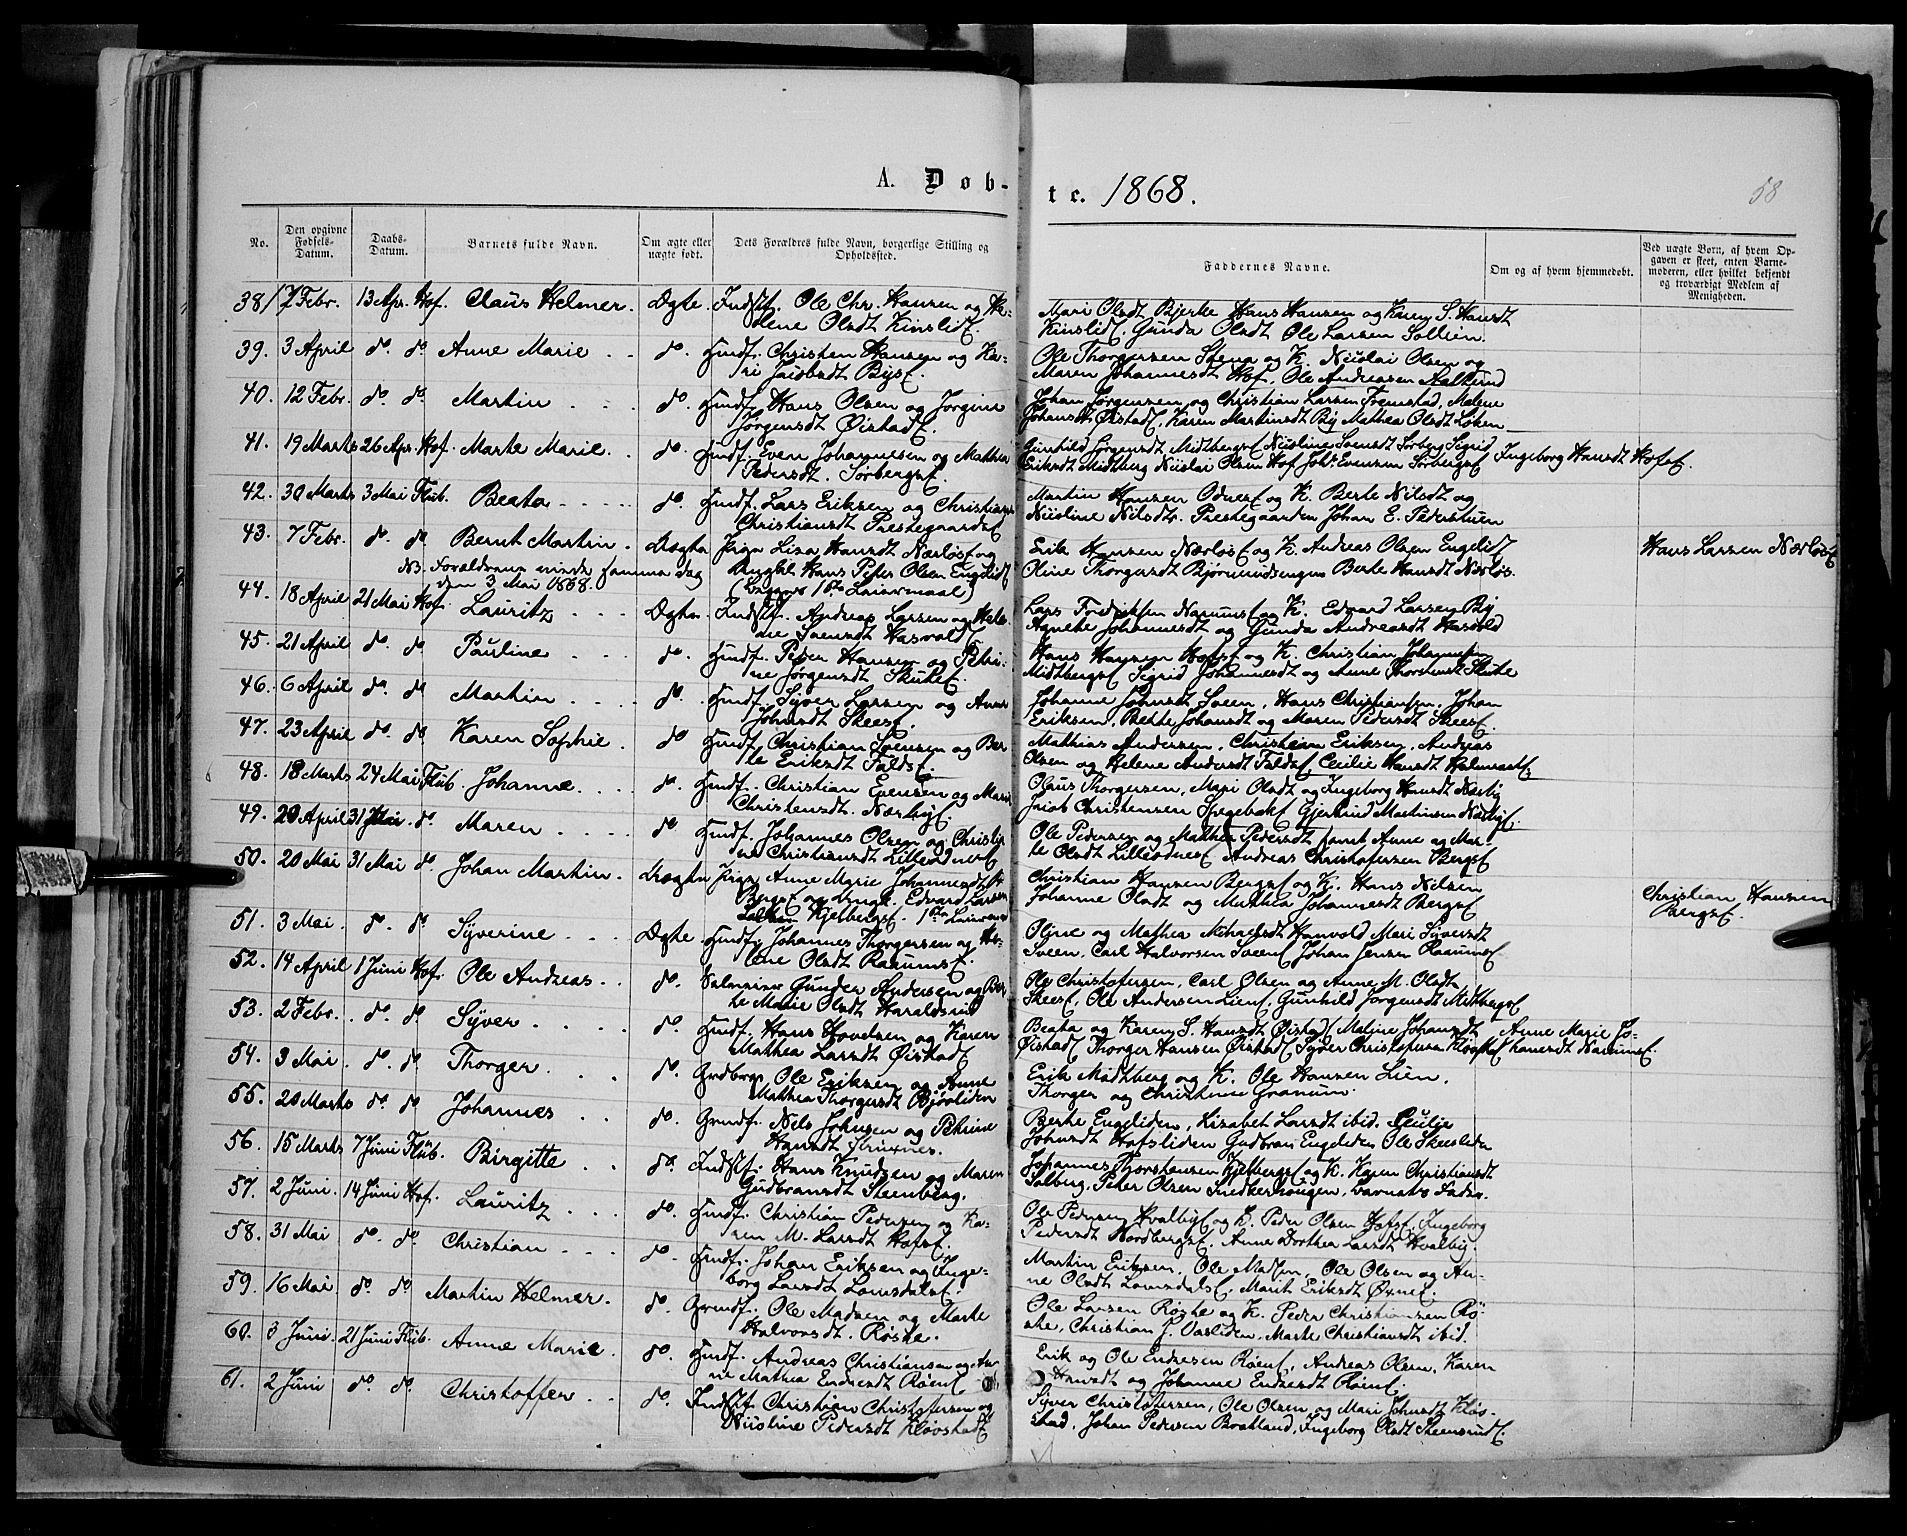 A. Døb-
te. 1868.
58
No.
Den opgivne Fødsels-Datum.
Daabs-Datum.
Barnets fulde Navn.
Om ægte eller uægte født.
Dets Forældres fulde Navn, borgerlige Stilling og Opholdssted.
Faddernes Navne.
Om og af hvem hjemmedøbt.
Ved uægte Børn, af hvem Opgaven er skeet, enten Barnemoderen, eller hvilket bekjendt og troværdigt Medlem af Menigheden.
38. 7 Febr. 13 Apr. Hof. Claus Helmer. Ægte Indst. Ole Chr. Hansen og He-
lene Olsdt Kinslid.
Mari Olsdt Bjerke Hans Hansen og Karen S. Hansdt
Kinslid, Gunda Olsdt Ole Larsen Sollien.
39. 3 April do. do. Anne Marie do. Huusf. Christen Hansen og Ka-
ri Jacobsdt Bye.
Ole Thorgersen Stena og K. Nicolai Olsen og
Maren Johannesdt Hof, Ole Andreasen Aalund
40. 12 Febr. do. do. Martin do. Huusf. Hans Olsen og Jørgine
Jørgensdt Øistad.
Johan Jørgensen og Christian Larsen Fremstad, Malene
Johansdt Øistad, Karen Martinsdt By Mathea Olsdt Løken
41. 19 Marts 26 Apr. Hof. Marte Marie do. Huusf. Even Johannesen og Mathea
Pedersdt. Sørberg.
Gunhild Jørgensdt Midtberg Nicoline Svensdt Sørberg Sigrid
Eriksdt Midtberg Nicolai Olsen Hof Johs. Evensen Sørberg
Ingeborg Hansdt Hof.
42. 30 Marts 3 Mai Flub. Beata do. Huusf. Lars Eriksen og Christiane
Christiansdt Prestegaards
Martin Hansen Odnes og K. Berte Nilsdt og
Nicoline Nilsdtr. Prestegaarden Johan E. Pederstuen
43. 7 Febr. do. do. Bernt Martin. Uægte Pige Lisa Hansdt Nærløs og
Ungkl Hans Peter Olsen Engelid
(Begges 1ste Leiermaal)
NB. Forældrene viede samme dag
den 3 Mai 1868.
Erik Hansen Nærløs og K. Andreas Olsen Engelid
Oline Thorgersdt Bjørnerudsengen Berte Hansdt Nærløs.
Hans Larsen Nærløs
44. 18 April 21 Mai Hof. Lauritz Ægte Indst. Andreas Larsen og Hele-
ne Svensdt Hasvold
Lars Fredriksen Narum og K. Edvard Larsen By
Agnethe Johannesdt og Gunda Andreasdt Hasvold
45. 21 April do. do. Pauline do. Huusf. Peder Hansen og Petri-
ne Jørgensdt Skute.
Hans Hansen Hof og K. Christian Johannesen
Midtberg Sigrid Johannesdt og Anne Thorstensdt Skute
46. 6 April do. do. Martin do. Huusf. Syver Larsen og Anne
Johnsdt Skees.
Johanne Johnsdt Sveen, Hans Christiansen, Johan
Eriksen, Berte Johansdt og Maren Pedersdt Skees.
47. 23 April do. do. Karen Sophie. do Huusf. Christian Svensen og Ber
te Eriksdt Falds.
Mathias Andersen, Christian Eriksen, Andreas
Olsen og Helene Andersdt Falds, Cecilie Hansdt
48. 18 Marts 24 Mai Flub. Johanne do. Huusf. Christian Evensen og Marie
Christensdt. Nærby.
Olaus Thorgersen, Mari Olsdt og Ingeborg Hansdt Nærby
Jacob Christensen Spegebak Gjertrud Martinsen Nærby.
49. 20 April 31 Mai. do. Maren do. Huusf. Johannes Olsen og Christia-
ne Christiansdt Lilleodnes
Ole Pedersen og Mathea Pedersdt samt Anne og Mar-
te Olsdt Lilleodnes, Andreas Christofersen Berg
50. 20 Mai 31 Mai do. Johan Martin. Uægte Pige Anne Marie Johannesdt
Berg og Ungk. Edvard Larsen
Kjelberg. 1ste
Christian Hansen Berg og K. Hans Nilsen
Johanne Olsdt og Mathea Johannesdt Berg
Christian Hansen
Berg.
51. 3 Mai. do. do Syverine Ægte Huusf. Johannes Thorgersen og He-
lene Olsdt Raaum.
Oline og Mathea Mikaelsdt Hanvold Mari Syversdt
Sveen, Carl Halvorsen Sveen Johan Jensen Raaum
52. 14 April 1 Juni Hof. Ole Andreas do. Salmager Gunder Andersen og Ber
te Marie Olsdt Haraldsrud
Ole Christofersen, Carl Olsen og Anne M. Olsdt
Skees, Ole Andersen Lien, Gunhild Jørgensdt Midtberg
53. 2 Febr. do. do. Syver do. Huusf. Hans Hovelsen og Karen
Mathea Larsdt Øistad
Beata og Karen S. Hansdt Øistad Maline Johansdt
Øistad Thorger Hansen Øistad Syver Christofersen Kløvstad
Anne Marie Jo-
hanesdt Narum.
54. 3 Mai. do. do Thorger. do. Grdbrg. Ole Eriksen og Anne
Mathea Thorgersdt Bjøraliden
Erik Midtberg og K. Ole Hansen Lien.
Thorger og Christine Granum
55. 20 Marts do. do Johannes do. Grundf. Nils Johnsen og Petrine
Hansdt
Berte Engeliden, Lisabet Larsdt ibid. Cecilie
Johnsdt Hofsliden Gudbran Engeliden Ole Skeesliden
56. 15 Marts 7 Juni Flub. Birgitte do. Indst. Hans Knudsen og Maren
Gudbransdt Steenberg.
Johannes Thorstensen Kjelberg og K. Karen Christiansdt
Solberg, Peter Olsen Snedkerhaugen, Barnets Fader.
57. 2 Juni. 14 Juni Hof. Lauritz do. Huusf. Christian Pedersen og Ka-
ren M. Larsdt Hof.
Ole Pedersen Hvalby og K. Peder Olsen Hof, Ingeborg
Pedersdt Nordberg. Anne Dorthea Larsdt Hvalby.
58. 31 Mai do. do. Christian do. Huusf. Johan Eriksen og Inge-
borg Larsdt Lomsdal.
Martin Eriksen, Ole Madsen, Ole Olsen og An-
ne Olsdt Lomsdal, Marit Eriksdt Øvne.
59. 16 Mai do. do Martin Helmer. do. Grundf. Ole Madsen og Marte
Halvorsdt. Røste.
Ole Larsen Røste og K. Peder Christiansen Rø-
ste, Christian J. Vasliden, Marte Christiansdt ibid.
60. 3 Juni. 21 Juni Flub. Anne Marie. do. Huusf. Andreas Christiansen og An-
ne Mathea Endresdt Røen
Erik og Ole Endresen Røen, Andreas Olsen, Karen
Hansdt og Johanne Endresdt Røen.
61. 2 Juni do. do. Christoffer do. Indst. Christian Christofersen og
Nicoline Pedersdt Kløvstad
Syver Christofersen, Ole Olsen og Mari Johnsdt Kløv-
stad, Johan Pedersen Bratland, Ingeborg Olsdt Steensrud.